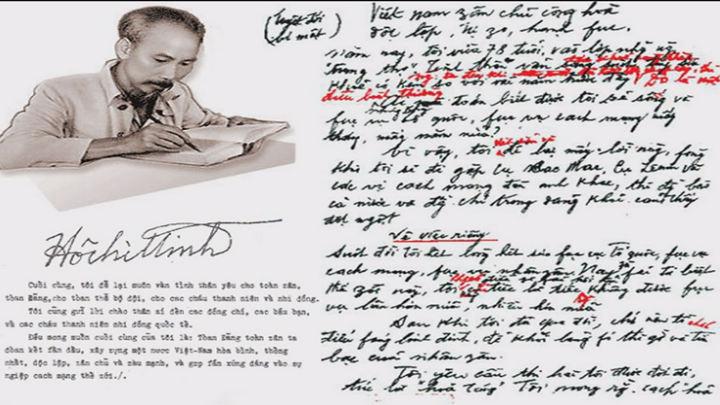 Hồ Chí Minh
Cuối cùng, tôi để lại muôn vàn tình thân yêu cho toàn zân,
toàn Đảng,cho toàn thể bộ đội, cho các cháu thanh niên và nhi đồng.
Tôi cũng gửi lời chào thân ái đến các đồng chí, các bầu bạn,
và các cháu thanh niên nhi đồng quốc tế.
Điều mong muốn cuối cùng của tôi là: Toàn Đảng toàn zân ta
đoàn kết fấn đấu, xây zựng một nước Việt-Nam hòa bình, thống
nhất, độc lập, zân chủ và zàu mạnh, và góp fần xứng đáng vào sự
ngiệp cách mạng thế zới./.
(tuyệt đối
bí mật)
Việt nam zân chủ cộng hoà
độc lập, tự zo, hạnh fúc
năm nay, tôi vừa 78 tuổi, vào lớp những người
"trung thọ". Tinh thần vẫn
so với vài năm trước đây
điều bình thường
toán biết được tôi sẽ sống và
fục vụ tổ quốc, fục vụ cách mạng mấy
tháng, mấy năm nữa?
Vì vậy, tôi để lại mấy lời này, fòng
khi tôi sẽ đi gặp cụ Các Mác, cụ Lênin và
các vị cách mạng đàn anh khác, thì đồng bào
cả nước và đồng chí trong đảng khỏi cảm thấy
đột ngột
Về việc riêng
Suốt đời tôi hết lòng hết sức fục vụ tổ quốc, fục vụ
cách mạng, fục vụ nhân zân. Nay zù fải từ biệt
thế zới này, tôi tiếc là tiếc không được fục
vụ lâu hơn nữa, nhiều hơn nữa
Sau khi tôi đã qua đời, chớ nên tổ chức
điếu fúng linh đình, để khỏi lãng fí thì zờ và tiền
bạc của nhân zân.
Tôi yêu cầu thi hài tôi được đốt đi,
tức là "hoả táng" Tôi mong rằng cách hoả